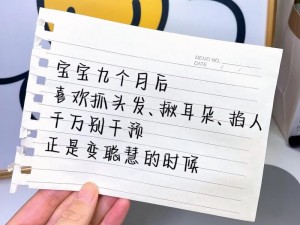 MEMO NO.
DATE / /
宝宝九个月后
喜欢抓头发、揪耳朵、掐人
千万别干预
正是变聪慧的时候